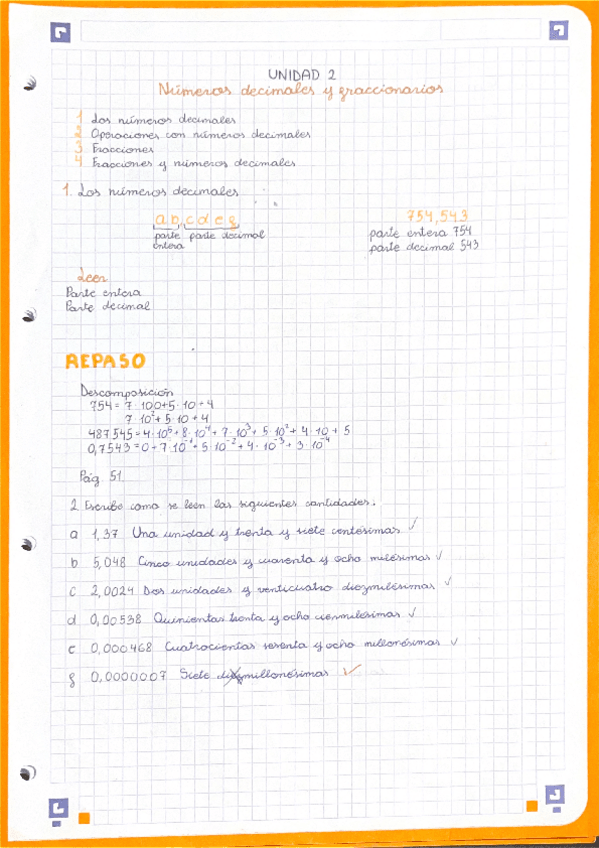 UNIDAD 2
Números decimales y fraccionarios
1 Los números decimales
2 Operaciones con números decimales
3 Fracciones
Fracciones y números decimales
1. Los números decimales
ab,cdeg 754,543
parte entera parte decimal parte entera 754
parte decimal 543
Leer
Parte entera
Parte decimal
REPASO
Descomposición
754 = 7·100+5·10+4
7·10²+5·10+4
487545=4·10⁵+8·10⁴+7·10³+5·10²+4·10+5
0,7543=0+7·10⁻¹+5·10⁻²+4·10⁻³+3·10⁻⁴
Pág 51.
2 Escribe como se leen las siguientes cantidades.
a 1,37 Una unidad y treinta y siete centésimas ✓
b 5,048 Cinco unidades y cuarenta y ocho milésimas ✓
c 2,0024 Dos unidades y venticuatro diezmilésimas ✓
d 0,00538 Quinientas treinta y ocho cienmilésimas ✓
e 0,000468 Cuatrocientas sesenta y ocho millonésimas ✓
f 0,0000007 Siete diezmillonésimas ✓